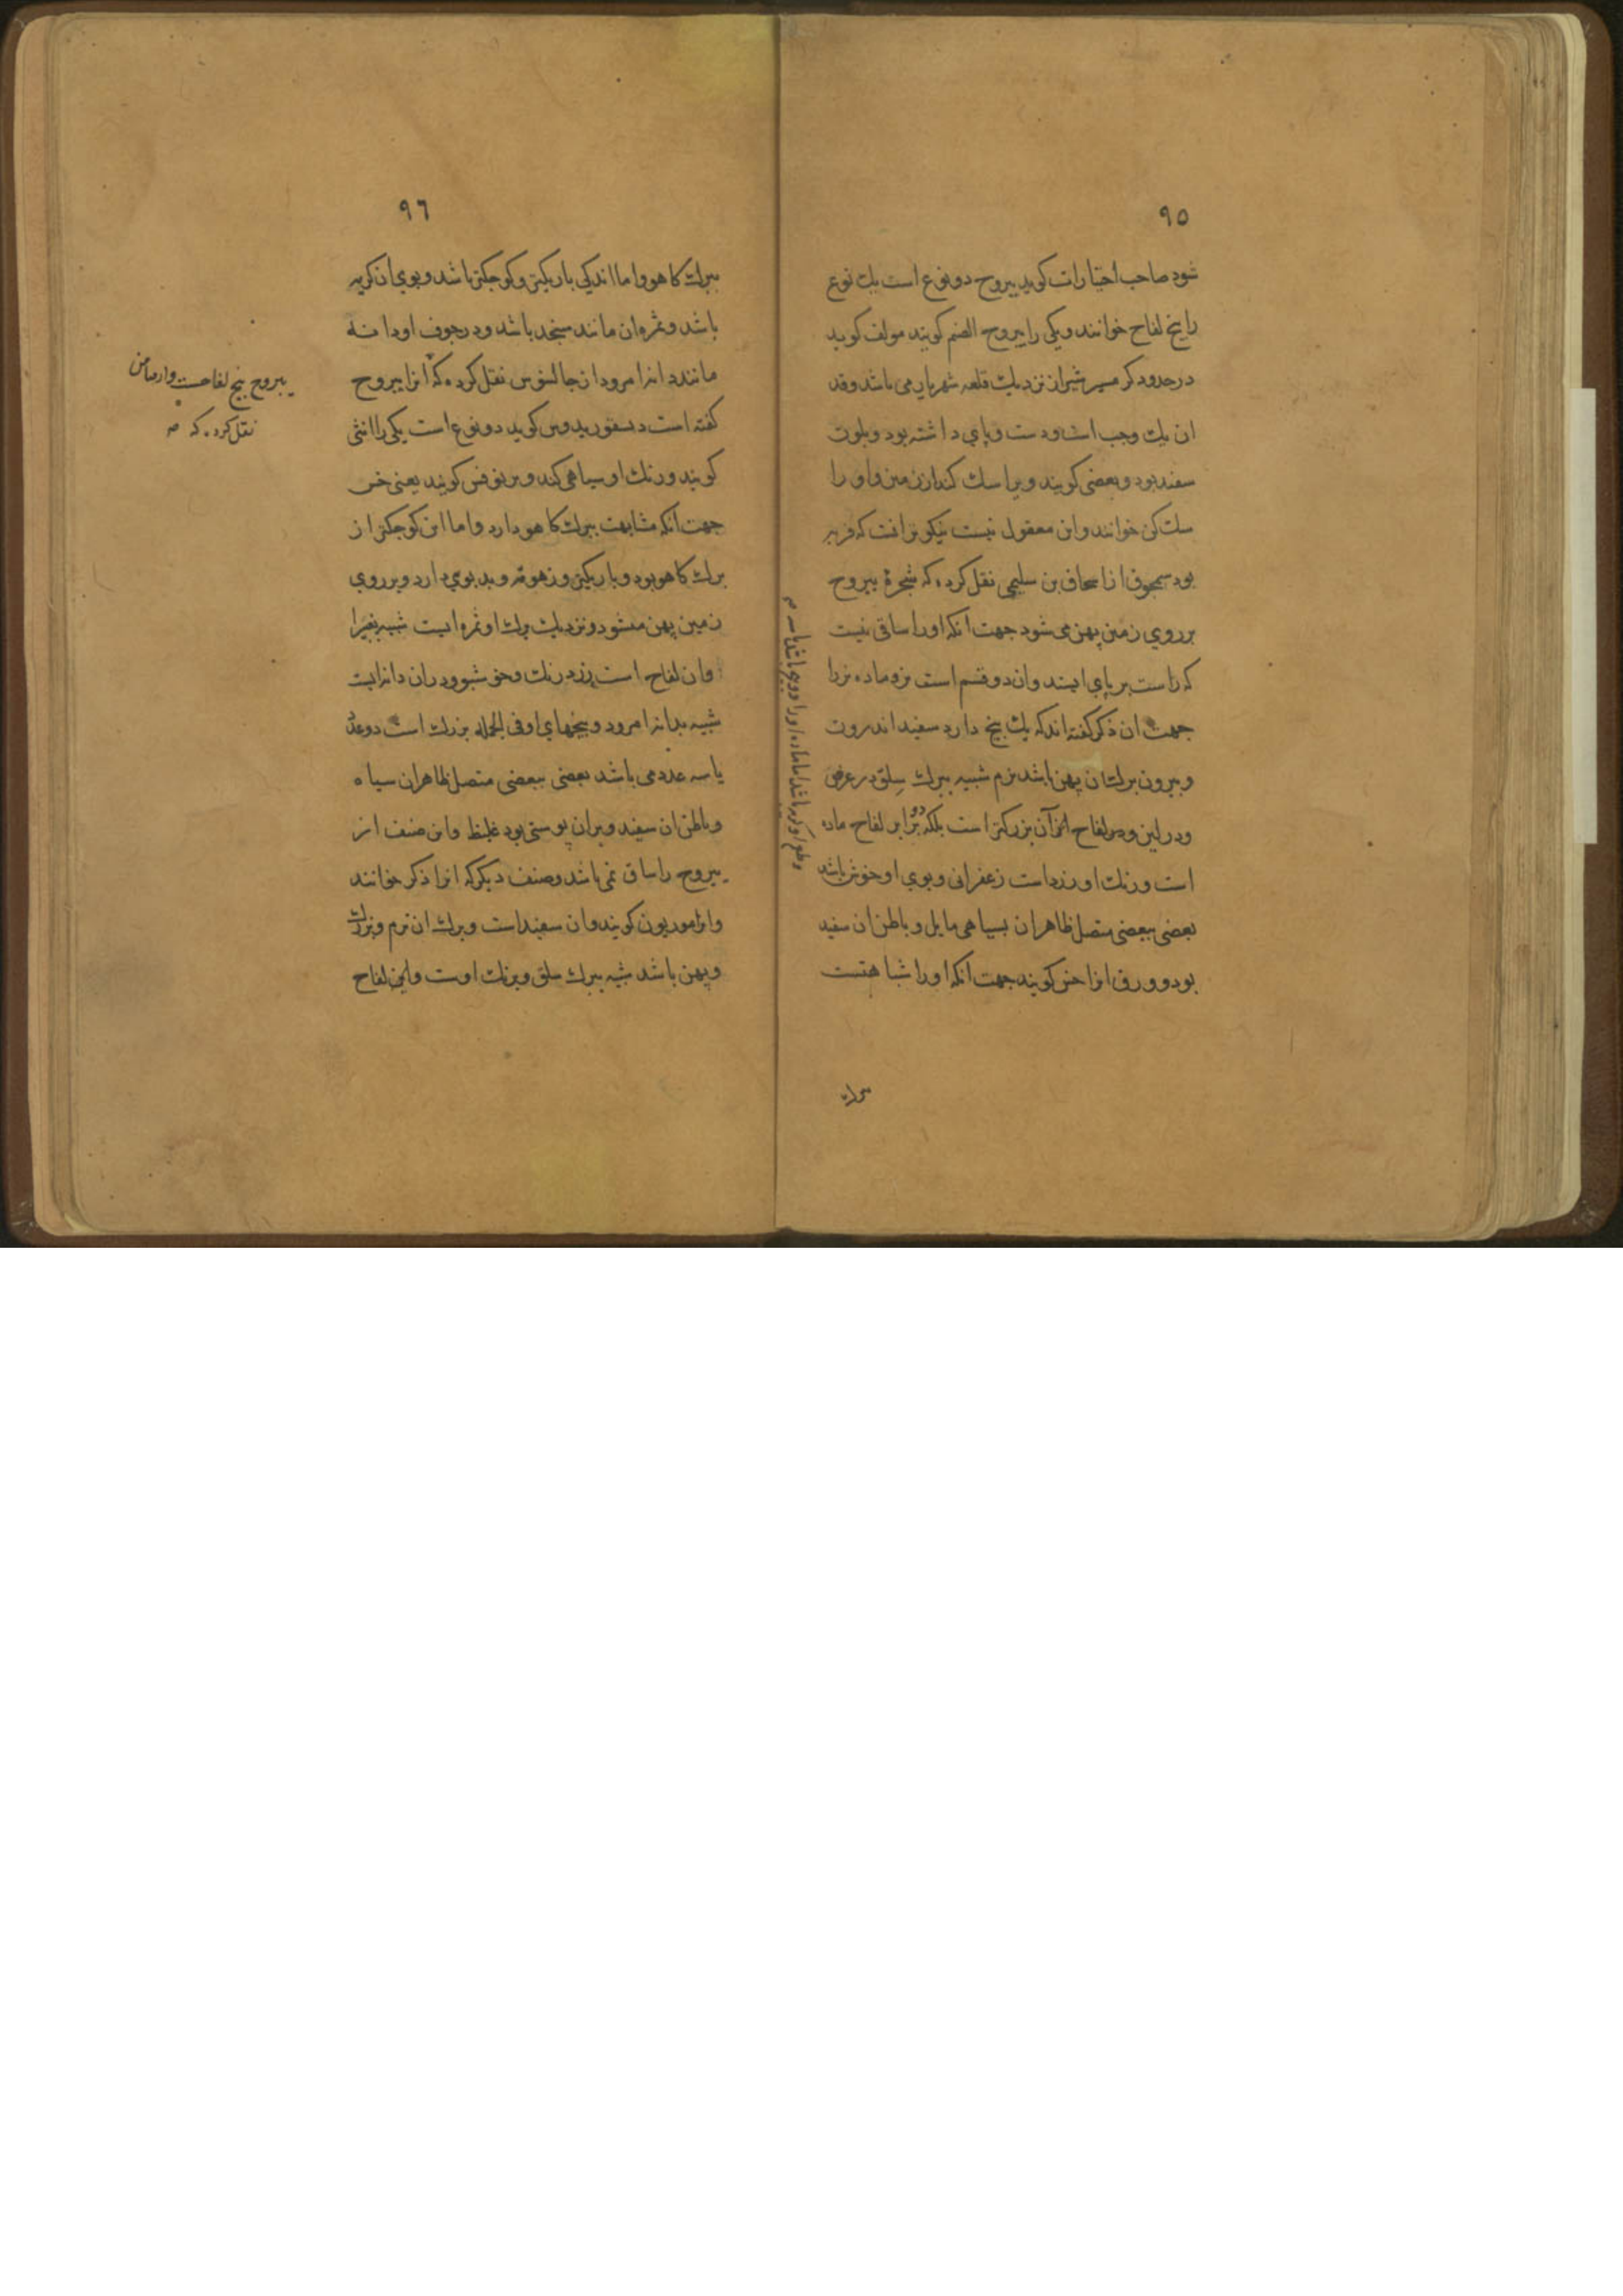 ٩٥
شود صاحب اختیارات کوید یبروح دو نوع است یك نوع
را بیخ لفاح خوانند و یکی را یبروح الصنم کویند مولف کوید
در حدود کرمسیر شیراز نزدیك قلعه شهریاری می باشد و قد
ان یك وجب است و دست و پای داشته بود و بلون
سفید بود و بعضی کویند ویرا سك کند از زمین و او را
سك کن خوانند و این معقول نیست نیکوترانست که فربر
بود سمجون از اسحاق بن سلیمی نقل کرده که شجرۀ یبروح
بر روی زمین پهن می شود جهت انکه او را ساقی نیست
که راست بر پای ایستد وان دو قسم است نر و ماده نر را
جهت ان ذکر کفته اند که یك بیخ دارد سفید اندرون
و بیرون برك ان پهن باشد نرم شبیه ببرك سلق در عرض
و در لین و لفاح ان بزرکتر است بلکه دو برابر لفاح ماده
است ورنك او زرد است زعفرانی و بوی او خوش باشد
بعضی ببعضی متصل ظاهر ان بسیاهی مایل و باطن ان سفید
بود و ورق انرا خس کویند جهت انکه او را شباهتست
ببرك
٩٦
ببرك کاهو و اما اندکی باریکتر و کوجکتر باشد و بوی ان کریه
باشد و ثمره ان مانند سنجد باشد و در جوف او دانه
مانند دانه امرود از جالینوس نقل کرده که انرا یبروح
کفته است دیسقوریدوس کوید دو نوع است یکی را انثی
کویند و رنك او سیاهی کند و بریوفس کویند یعنی خس
جهت انکه مشابهت ببرك کاهو دارد و اما این کوجکتر از
برك کاهو بود و باریکتر و زهومة و بد بوی دارد و بر روی
زمین پهن میشود و نزدیك برك او ثمره ایست شبیه بغبیرا
وان لفاح است زرد رنك و خوشبو و در ان دانه ایست
شبیه بدانه امرود و بیخهای او فی الجمله بزرك است دو عدد
یا سه عدد می باشد بعضی ببعضی متصل ظاهر ان سیاه
و باطن ان سفید و بران پوستی بود غلیظ و این صنف از
یبروح را ساق نمی باشد و صنف دیکر که انرا ذکر خوانند
وانرا موریون کویند وان سفید است و برك ان نرم و بزرك
و پهن باشد شبیه ببرك سلق و برنك اوست و این لفاح
یبروح بیخ لفاحست
نقل کرده که